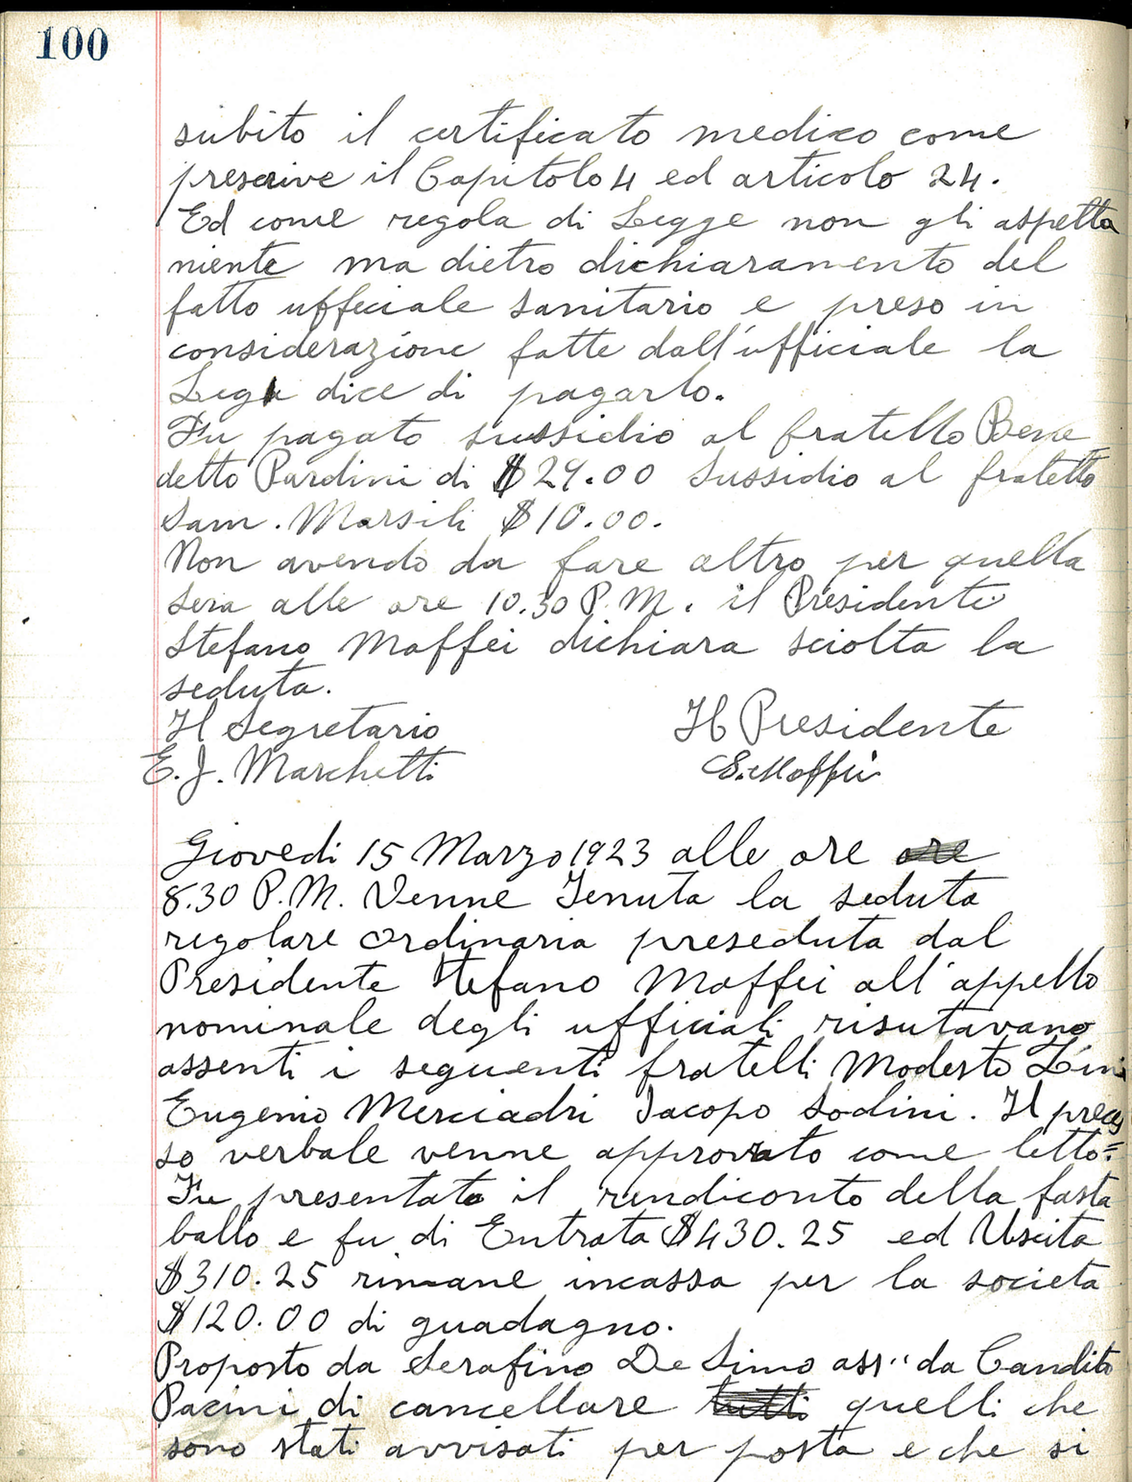 100
subito il certificato medico come
prescrive il Capitolo 4 ed articolo 24.
Ed come regola di Legge non gli aspetta
niente ma dietro dichiaramento del
fatto ufficiale sanitario e preso in
considerazione fatte dall'ufficiale la
Lega dice di pagarlo.
Fu pagato sussidio al fratello Bene
detto Pardini di $29.00 Sussidio al fratello
Sam. Marsili $10.00.
Non avendo da fare altro per quella
sera alle ore 10.30 P.M. il Presidente
Stefano Maffei dichiara sciolta la
seduta.
Il Segretario Il Presidente
E. J. Marchetti S. Maffei
Giovedi 15 Marzo 1923 alle ore ore
8.30 P.M. Venne Tenuta la seduta
regolare ordinaria preseduta dal
Presidente Stefano Maffei all'appello
nominale degli ufficiali risutavano
assenti i seguenti fratelli Modesto Lini
Eugenio Merciadri Jacopo Sodini. Il preces
so verbale venne approvato come letto=
Fu presentato il rendiconto della fasta
ballo e fu di Entrata $430.25 ed Uscita
$310.25 rimane incassa per la societa
$120.00 di guadagno.
Proposto da Serafino De Simo ass" da Candito
Pacini di cancellare tutti quelli che
sono stati avvisati per posta e che si